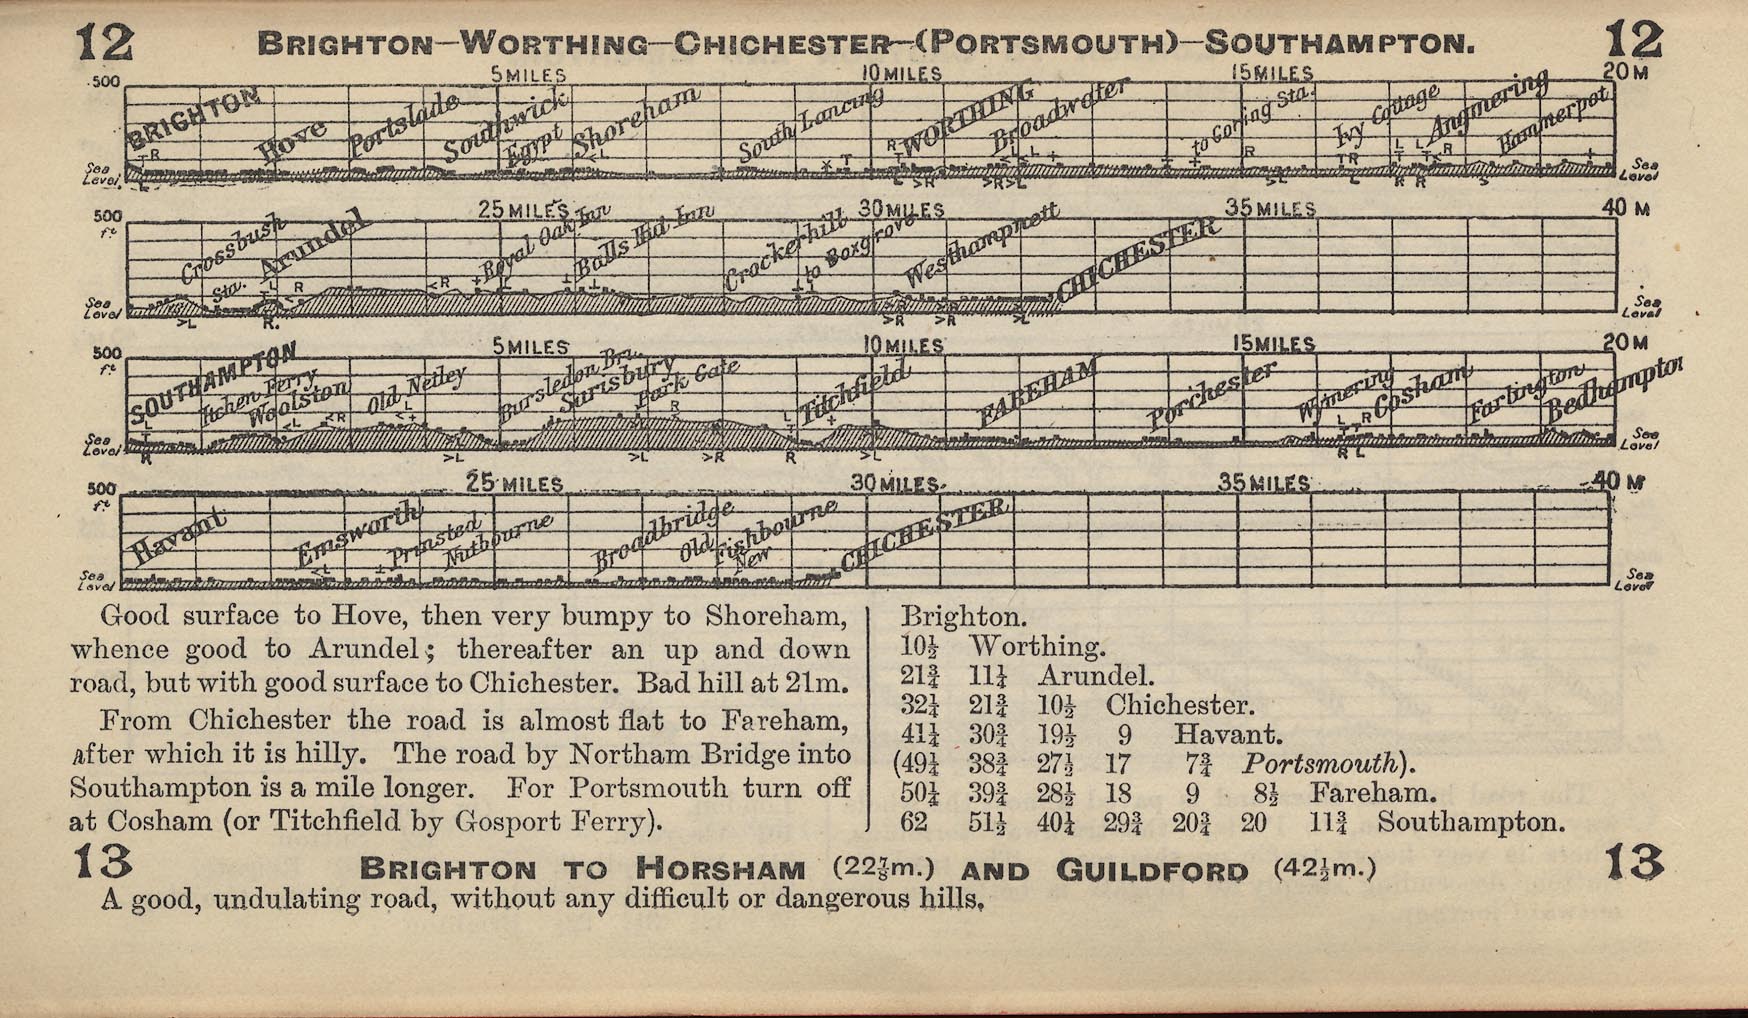 12 BRIGHTON—WORTHING—CHICHESTER—(PORTSMOUTH)—SOUTHAMPTON. 12
500 5 MILES 10 MILES 15 MILES 20 M
BRIGHTON Hove Portslade Southwick Egypt Shoreham South Lancing WORTHING Broadwater to Goring Sta. Ivy Cottage Angmering Hammerpot
Sea Level Sea Level
500 ft 25 MILES 30 MILES 35 MILES 40 M
Crossbush Sta. Arundel Royal Oak Inn Balls Hut Inn Crockerhill to Boxgrove Westhampnett CHICHESTER
Sea Level Sea Level
500 ft 5 MILES 10 MILES 15 MILES 20 M
SOUTHAMPTON Itchen Ferry Woolston Old Netley Bursledon Bri. Sarisbury Park Gate Titchfield FAREHAM Porchester Wymering Cosham Farlington Bedhampton
Sea Level Sea Level
500 ft 25 MILES 30 MILES 35 MILES 40 M
Havant Emsworth Prinsted Nutbourne Broadbridge Old Fishbourne New CHICHESTER
Sea Level Sea Level
Good surface to Hove, then very bumpy to Shoreham,
whence good to Arundel; thereafter an up and down
road, but with good surface to Chichester. Bad hill at 21m.
From Chichester the road is almost flat to Fareham,
after which it is hilly. The road by Northam Bridge into
Southampton is a mile longer. For Portsmouth turn off
at Cosham (or Titchfield by Gosport Ferry).
Brighton.
10½ Worthing.
21¾ 11¼ Arundel.
32¼ 21¾ 10½ Chichester.
41¼ 30¾ 19½ 9 Havant.
(49¼ 38¾ 27½ 17 7¾ Portsmouth).
50¼ 39¾ 28½ 18 9 8½ Fareham.
62 51½ 40¼ 29¾ 20¾ 20 11¾ Southampton.
13 BRIGHTON TO HORSHAM (22⅞m.) AND GUILDFORD (42½m.) 13
A good, undulating road, without any difficult or dangerous hills.